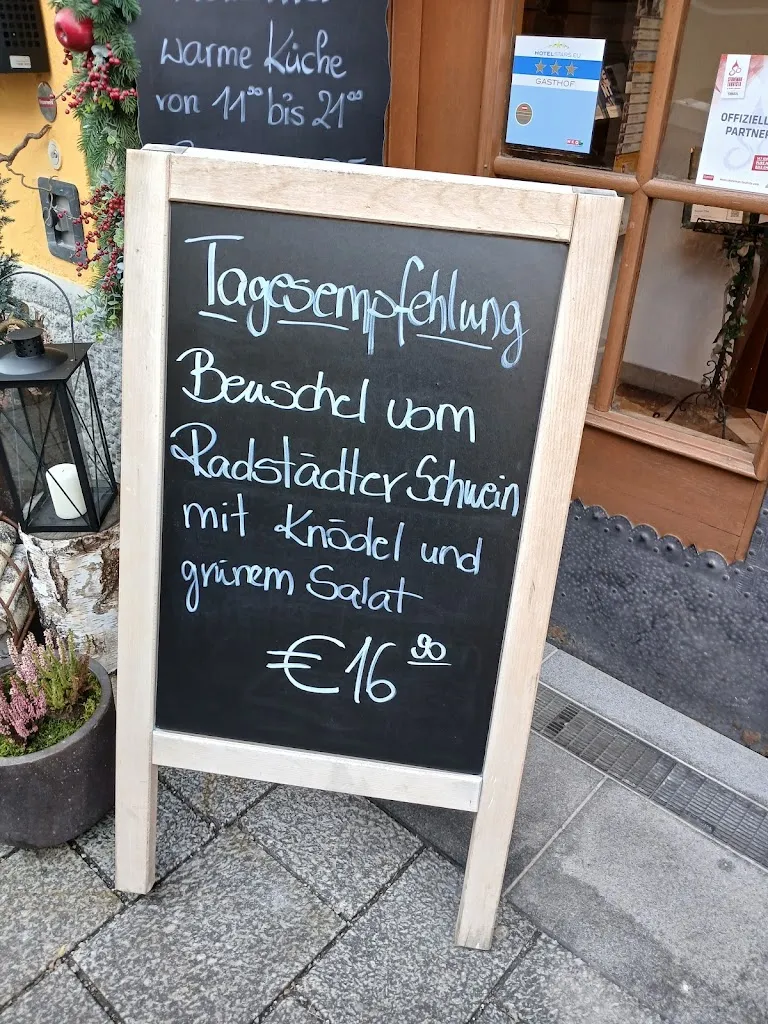 warme Küche
von 11⁰⁰ bis 21⁰⁰
HOTELSTARS.EU
GASTHOF
OFFIZIELL
PARTNER
Tagesempfehlung
Beuschel vom
Radstädter Schwein
mit Knödel und
grünem Salat
€16⁹⁰